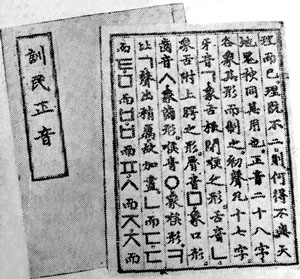 理而已理既不二則何得不與天
地鬼神同其用也正音二十八字
各象其形而制之初聲凡十七字
牙音ㄱ象舌根閉喉之形舌音ㄴ
象舌附上腭之形脣音ㅁ象口形
齒音ㅅ象齒形喉音ㅇ象喉形ㅋ
比ㄱ聲出稍厲故加畫ㄴ而ㄷㄷ
而ㅌㅁ而ㅂㅂ而ㅍㅅ而ㅈㅈ而
訓民正音